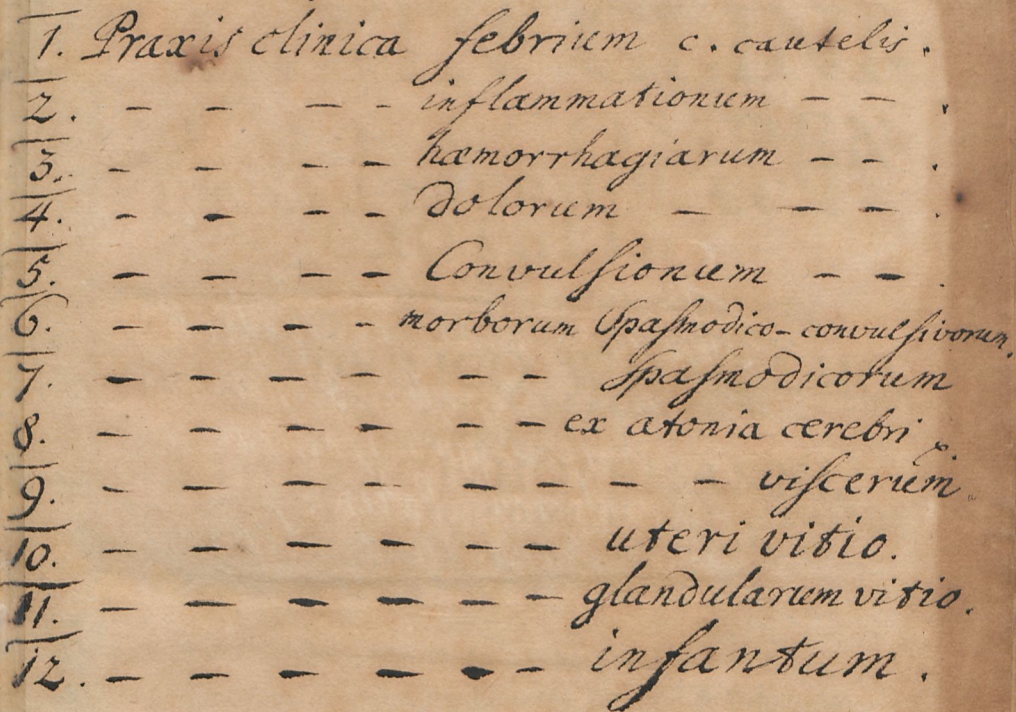 1. Praxis clinica febrium c. cautelis.
2. — — — — inflammationum — — .
3. — — — — hæmorrhagiarum — — .
4. — — — — dolorum — — — .
5. — — — — Convulsionum — — .
6. — — — — morborum Spasmodico-convulsivorum.
7. — — — — — — Spasmodicorum
8. — — — — — — ex atonia cerebri
9. — — — — — — — — viscerum
10. — — — — — — uteri vitio.
11. — — — — — — glandularum vitio.
12. — — — — — — infantum.